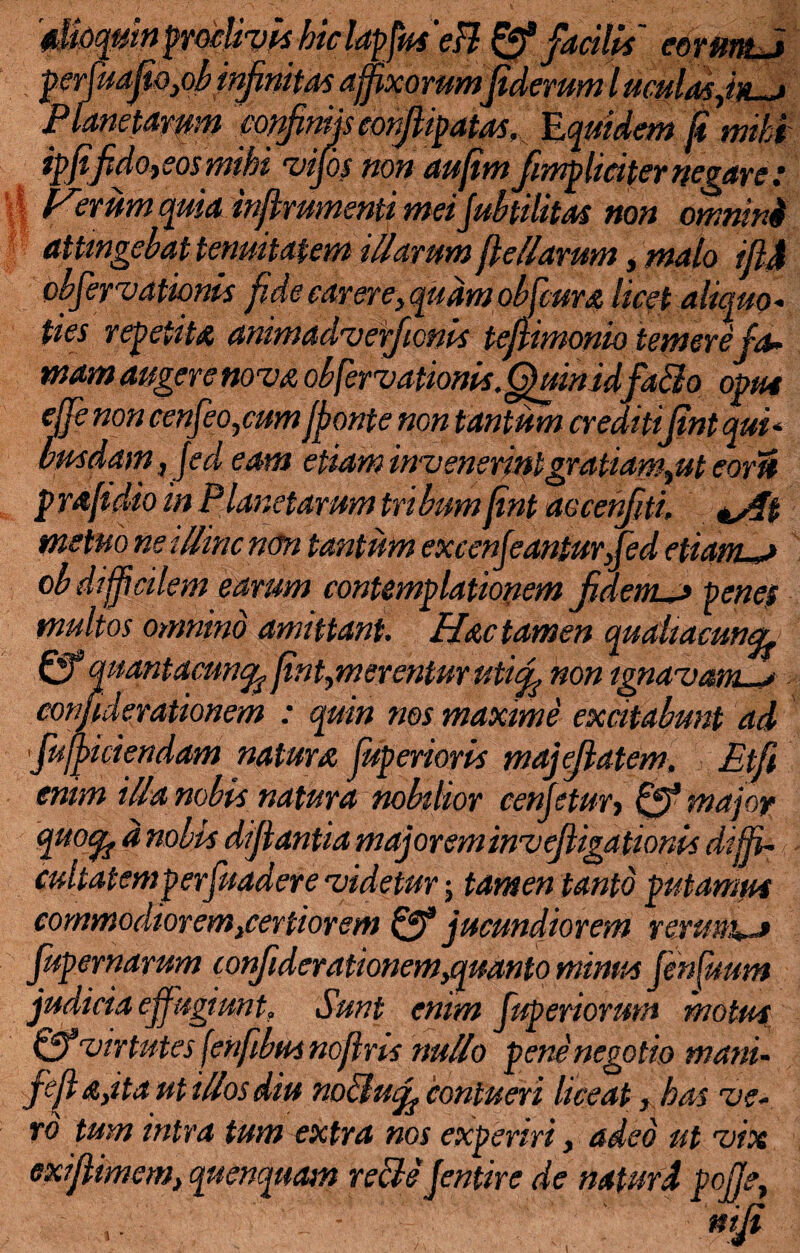 alioquin proclivis hic lapsus est & facilis eorum
persuasio, ob infinitas affixorum siderum luculas, in
Planetarum confinijs constipatas. Equidem si mihi
ipsi fido, eos mihi visos non ausim simpliciter negare:
Verùm quia instrumenti mei subtilitas non omninò
attingebat tenuitatem illarum stellarum, malo istâ
observationis fide carere, quàm obscuræ licet aliquo-
ties repetitæ animadversionis testimonio temerè fa-
mam augere novæ observationis. Quin id facto opus
esse non censeo, cum sponte non tantùm crediti sint qui-
busdam, sed eam etiam invenerint gratiam, ut eorũ
præsidio in Planetarum tribum sint accensiti. At
metuo ne illinc non tantùm excenseantur, sed etiam
ob difficilem earum contemplationem fidem penes
multos omninò amittant. Hæc tamen qualiacunq;
& quantacunq; sint, merentur utiq; non ignavam
considerationem : quin nos maximè excitabunt ad
suspiciendam naturæ superioris majestatem. Etsi
enim illa nobis natura nobilior censetur, & major
quoq; à nobis distantia majorem investigationis diffi-
cultatem persuadere videtur; tamen tantò putamus
commodiorem, certiorem & jucundiorem rerum
supernarum considerationem, quanto minus sensuum
judicia effugiunt. Sunt enim superiorum motus
& virtutes sensibus nostris nullo penè negotio mani-
festæ, ita ut illos diu noctuq; contueri liceat, has ve-
rò tum intra tum extra nos experiri, adeò ut vix
existimem, quenquam rectè sentire de naturâ posse,
nisi